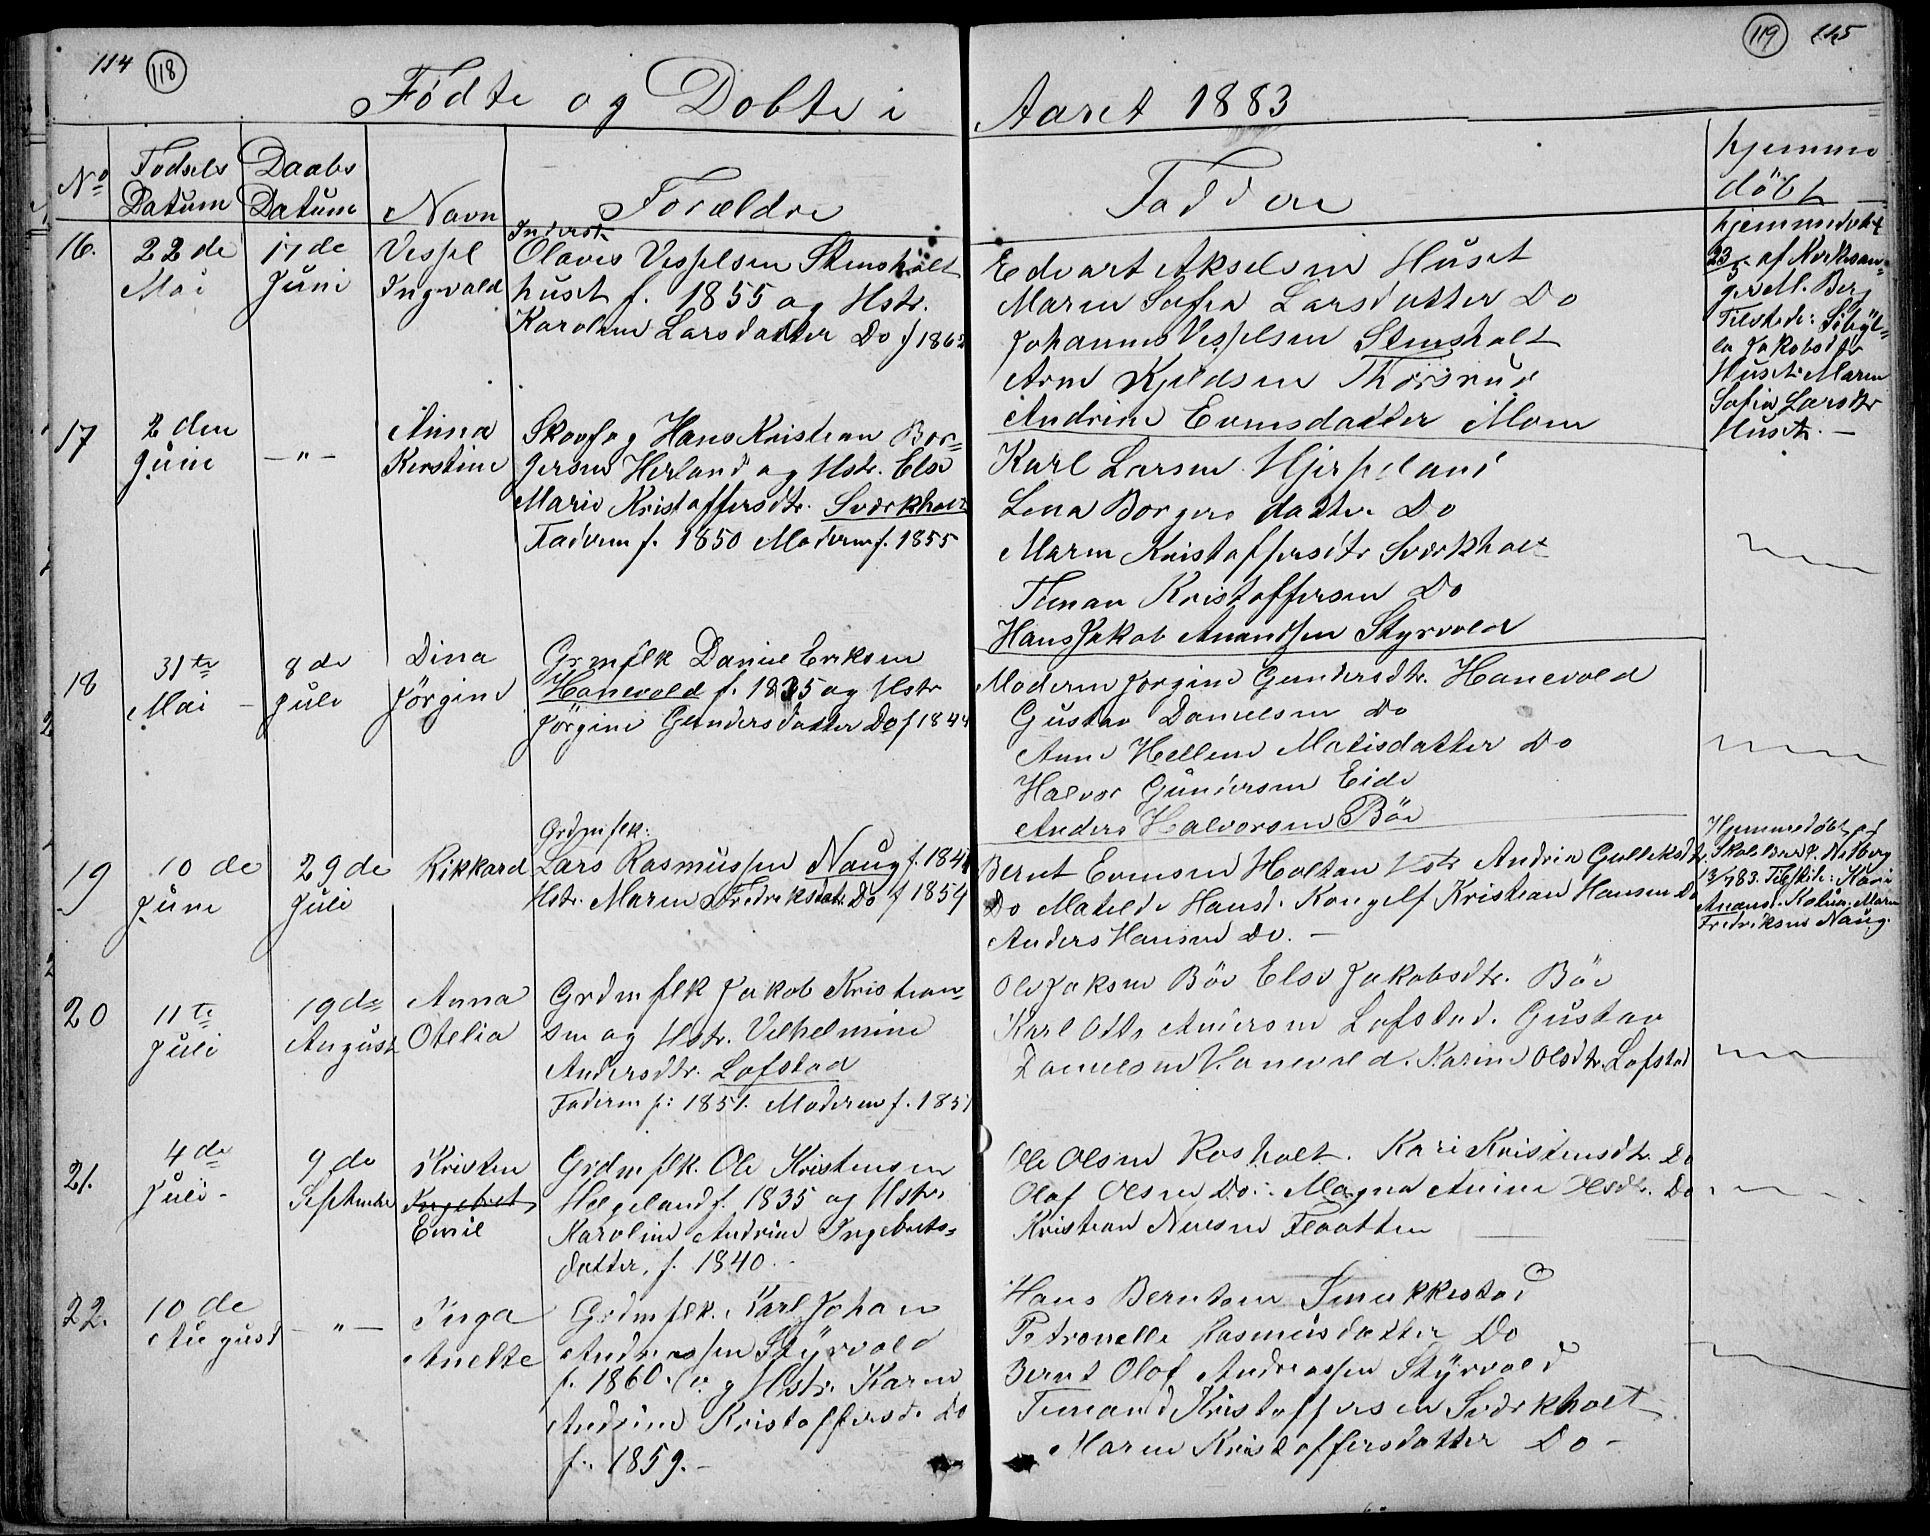 114 118
Fødte og Døbte i Aaret 1883
119 115
No Fødsels Datum Daabs Datum Navn Forældre Faddere Hjemme døbt
16. 22de Mai 17de Juni Vessel Ingvald
Inderst
Olaves Vesselsen Stensholt
huset f. 1855 og Hstr.
Karoline Larsdatter Do f 1862
Edvart Akselsen Huset
Maren Sofia Larsdatter Do
Johannes Vesselsen Stensholt
Arne Kjeldsen Thorsrud
Andrine Evensdatter Moen
Hjemmedøbt
23/5 af Kirkesan=
ger M. Berg
Tilstede: Sibyl=
la Jakobsdtr
Huset Maren
Sofia Larsdtr
Huset. —
17 2den Juni — " — Anna Kirstine
Skovfog Hans Kristian Bor=
gersen Herland og Hstr. Else
Marie Kristoffersdtr. Sværkholt
Faderen f. 1850 Moderen f. 1855
Karl Larsen Hjerpeland
Lena Borgersdatter Do
Maren Kristoffersdtr Sværkholt
Timan Kristoffersen Do
Hans Jakob Anundsen Styrvold
18 31te Mai — 8de Juli Dina Jörgine
Grmflk Daniel Eriksen
Hanevold f. 1835 og Hstr
Jörgine Gundersdatter Do f 1844
Moderen Jörgine Gundersdtr. Hanevold
Gustav Danielsen Do
Anne Hellene Matisdatter Do
Halvor Gundersen Eide
Anders Halvorsen Böe
19 10de Juni 29de Juli Rikkard
Grdmflk:
Lars Rasmussen Naug f. 1844
Hstr. Maren Fredriksdatr Do f 1854
Bernt Evensen Holtan Hstr Andrea Gulliksdtr
Do Matilde Hansd. Kongelf Kristian Hansen Do
Anders Hansen Do. —
Hjemmedøbt af
Skolelærer P. Nelberg
13/7 83. Tilstede: Kari
Anund. Kolun. Maren
Fredriksens Naug.
20 11te Juli 19de August Anna Otelia
Grdmflk Jakob Kristian=
sen og Hstr. Vilhelmine
Andersdtr. Lofstad
Faderen f: 1851. Moderen f. 1851
Ole Jaksen Böe Else Jakobsdtr. Böe
Karl Otto Andersen Lofstad. Gustav
Danielsen Hanevold. Karine Olsdtr. Lofstad
21. 4de Juli - 9de September Kristen Ingebret Emil
Grdmflk. Ole Kristensen
Helgeland f. 1835 og Hstr.
Karoline Andrine Ingebrets=
datter, f. 1840.
Ole Olsen Rosholt. Kari Kristensdtr. Do
Olaf Olsen Do. Magna Anine Olsdtr. Do.
Kristian Nilsen Flaatten
22. 10de August — " — Inga Anette
Grdmflk. Karl Johan
Andreassen Styrvold
f. 1860. og Hstr. Karen
Andrine Kristoffersd. Do
f. 1859. —
Hans Berntsen Smukkestad
Petronelle Rasmusdatter Do
Bernt Olaf Andreassen Styrvold
Timand Kristoffersen Sværkholt
Maren Kristoffersdatter Do —